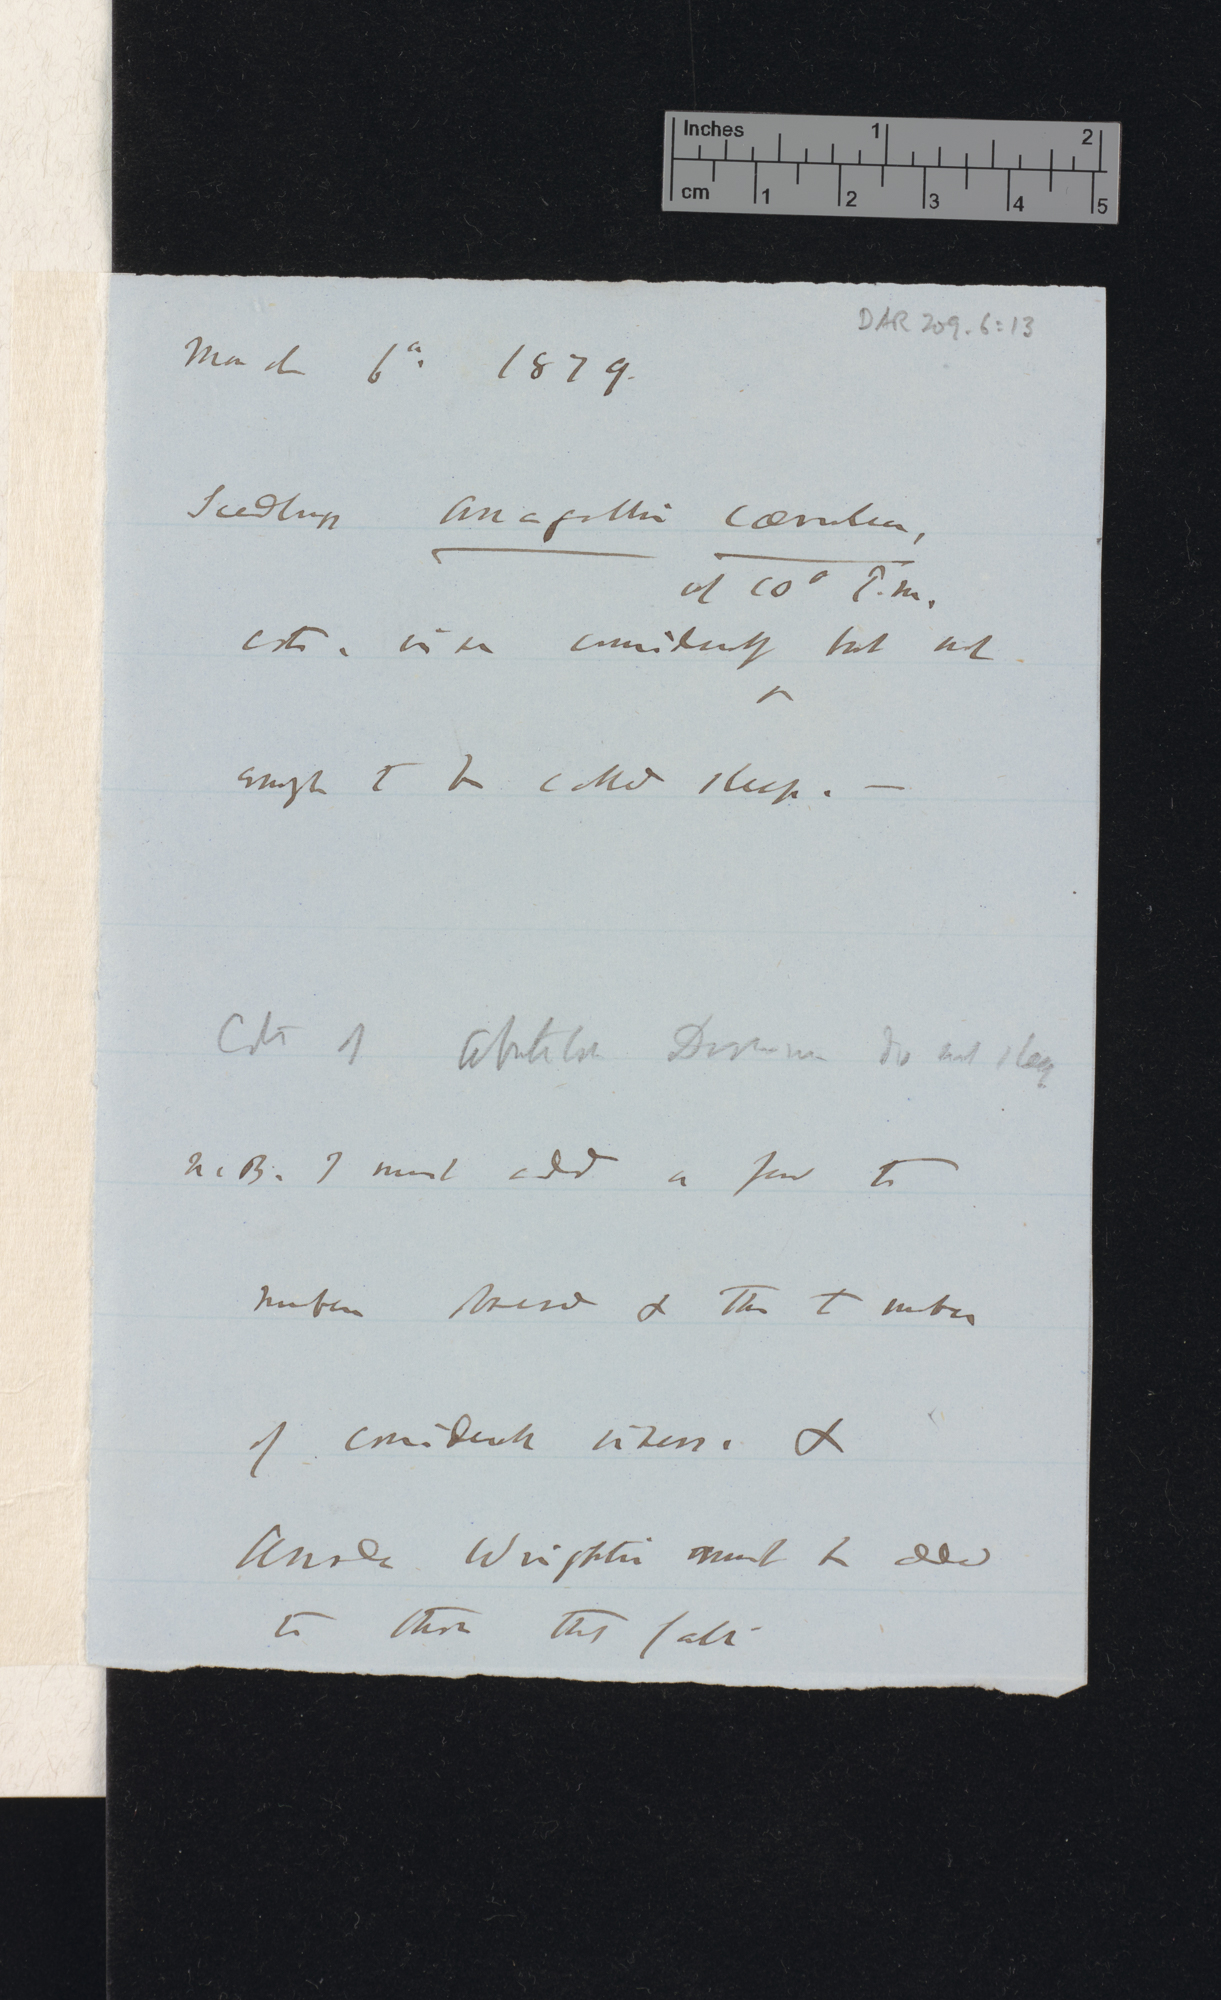 Inches 1 2
cm 1 2 3 4 5
DAR 209.6:13
March 6th. 1879.
Seedlings Anagallis cœrulea,
at 10° P.m.
cots. risen considerably but not
^
enough to be called sleep. —
Cots of Abutilon Darwinii do not sleep
N.B. I must add a few to
number &
of considerable risers. &
Anoda Wrightii must be added
to those that fall